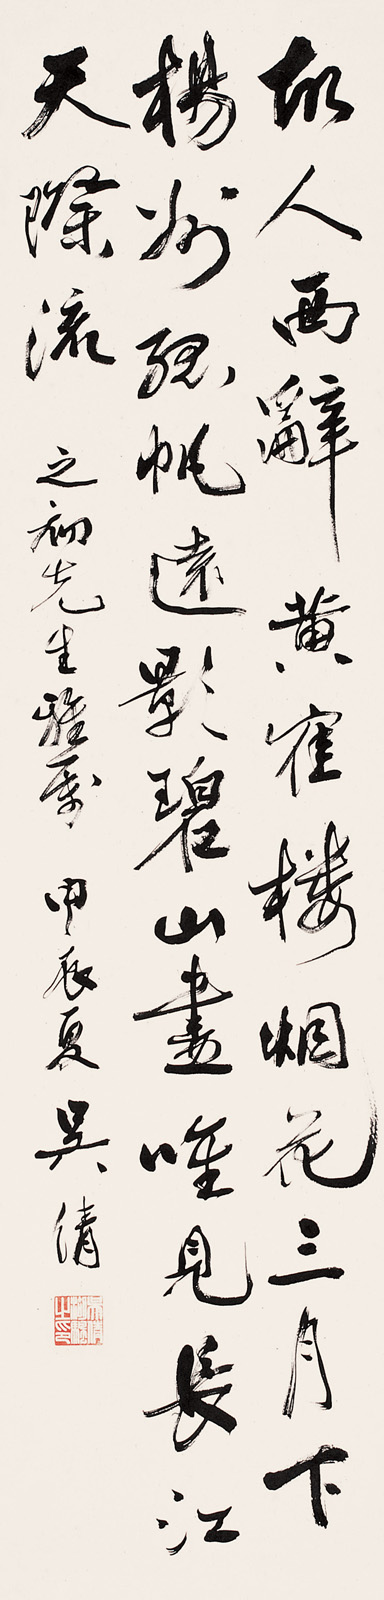 故人西辭黄隺楼烟花三月下
楊州孤帆遠影碧山盡唯見長江
天際流 之初先生雅属 甲辰夏 吴